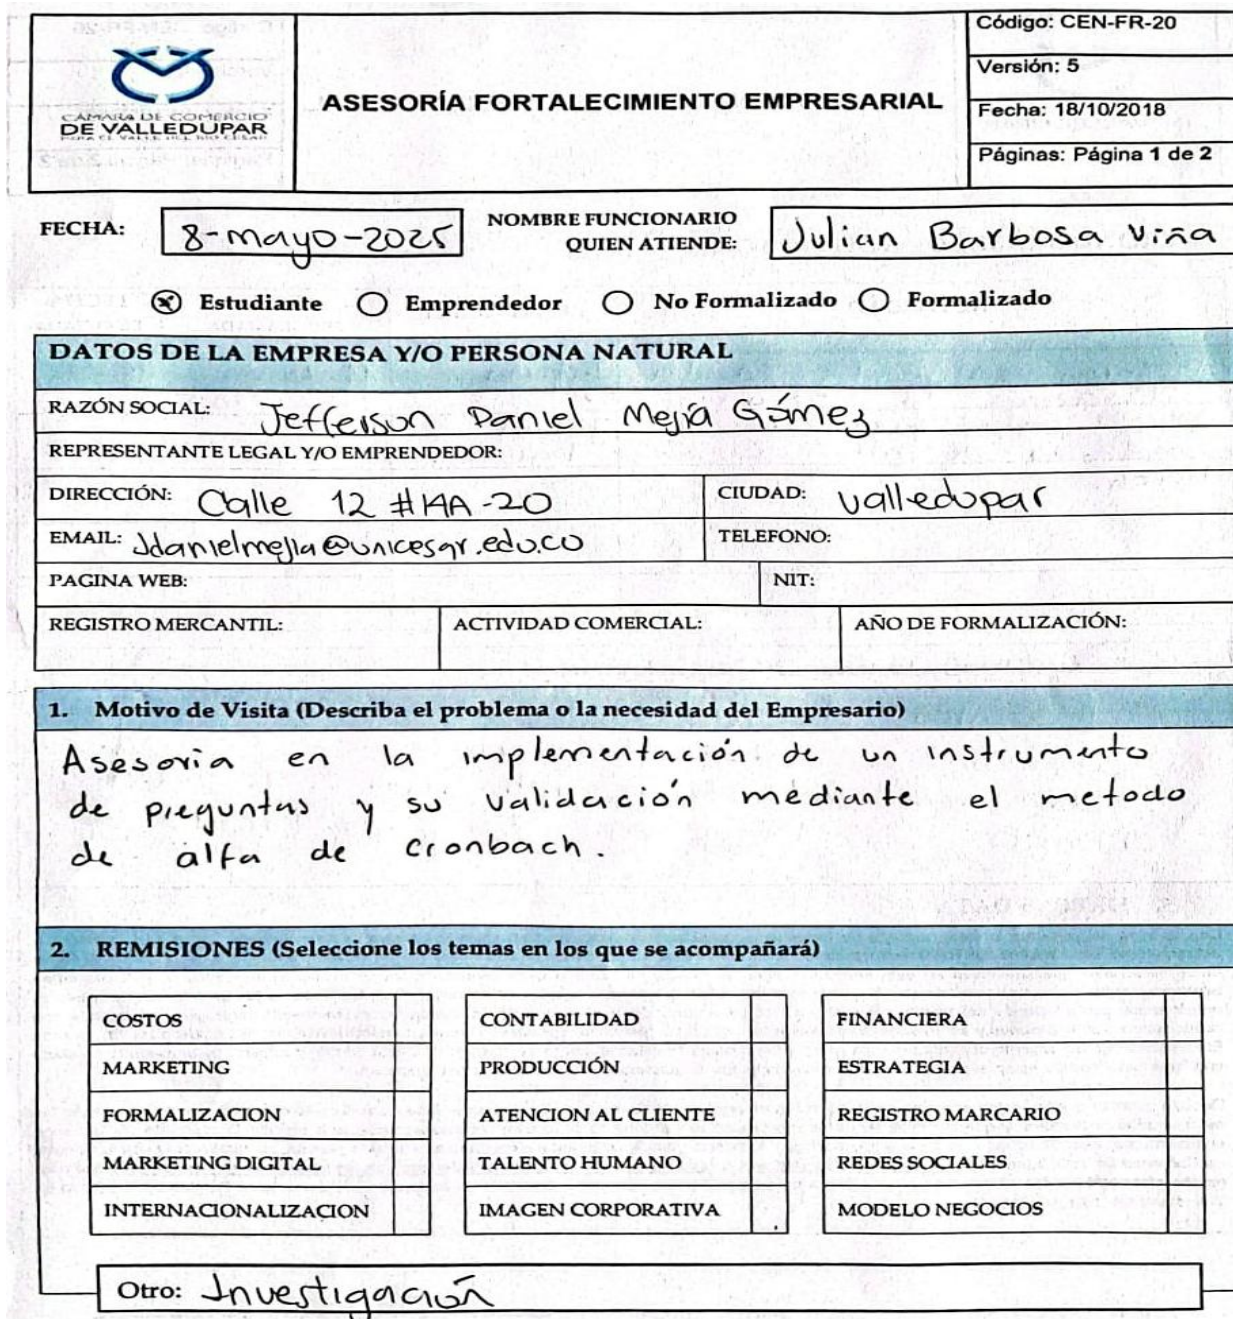 CÁMARA DE COMERCIO
DE VALLEDUPAR
ASESORÍA FORTALECIMIENTO EMPRESARIAL
Código: CEN-FR-20
Versión: 5
Fecha: 18/10/2018
Páginas: Página 1 de 2
FECHA: 8-mayo-2025
NOMBRE FUNCIONARIO
QUIEN ATIENDE: Julian Barbosa Viña
Estudiante Emprendedor No Formalizado Formalizado
DATOS DE LA EMPRESA Y/O PERSONA NATURAL
RAZÓN SOCIAL: Jefferson Daniel Mejía Gámez
REPRESENTANTE LEGAL Y/O EMPRENDEDOR:
DIRECCIÓN: Calle 12 #19A-20 CIUDAD: valledupar
EMAIL: Jdanielmejia@unicesar.edu.co TELEFONO:
PAGINA WEB: NIT:
REGISTRO MERCANTIL: ACTIVIDAD COMERCIAL: AÑO DE FORMALIZACIÓN:
1. Motivo de Visita (Describa el problema o la necesidad del Empresario)
Asesoria en la implementación de un instrumento
de preguntas y su validación mediante el metodo
de alfa de cronbach.
2. REMISIONES (Seleccione los temas en los que se acompañará)
COSTOS CONTABILIDAD FINANCIERA
MARKETING PRODUCCIÓN ESTRATEGIA
FORMALIZACION ATENCION AL CLIENTE REGISTRO MARCARIO
MARKETING DIGITAL TALENTO HUMANO REDES SOCIALES
INTERNACIONALIZACION IMAGEN CORPORATIVA MODELO NEGOCIOS
Otro: Investigación